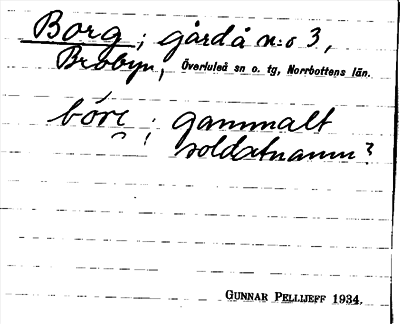 Borg ; gård å n:o 3,
Brobyn, Överluleå sn o. tg, Norrbottens län.
; gammalt
soldatnamn?
GUNNAR PELLIJEFF 1934.